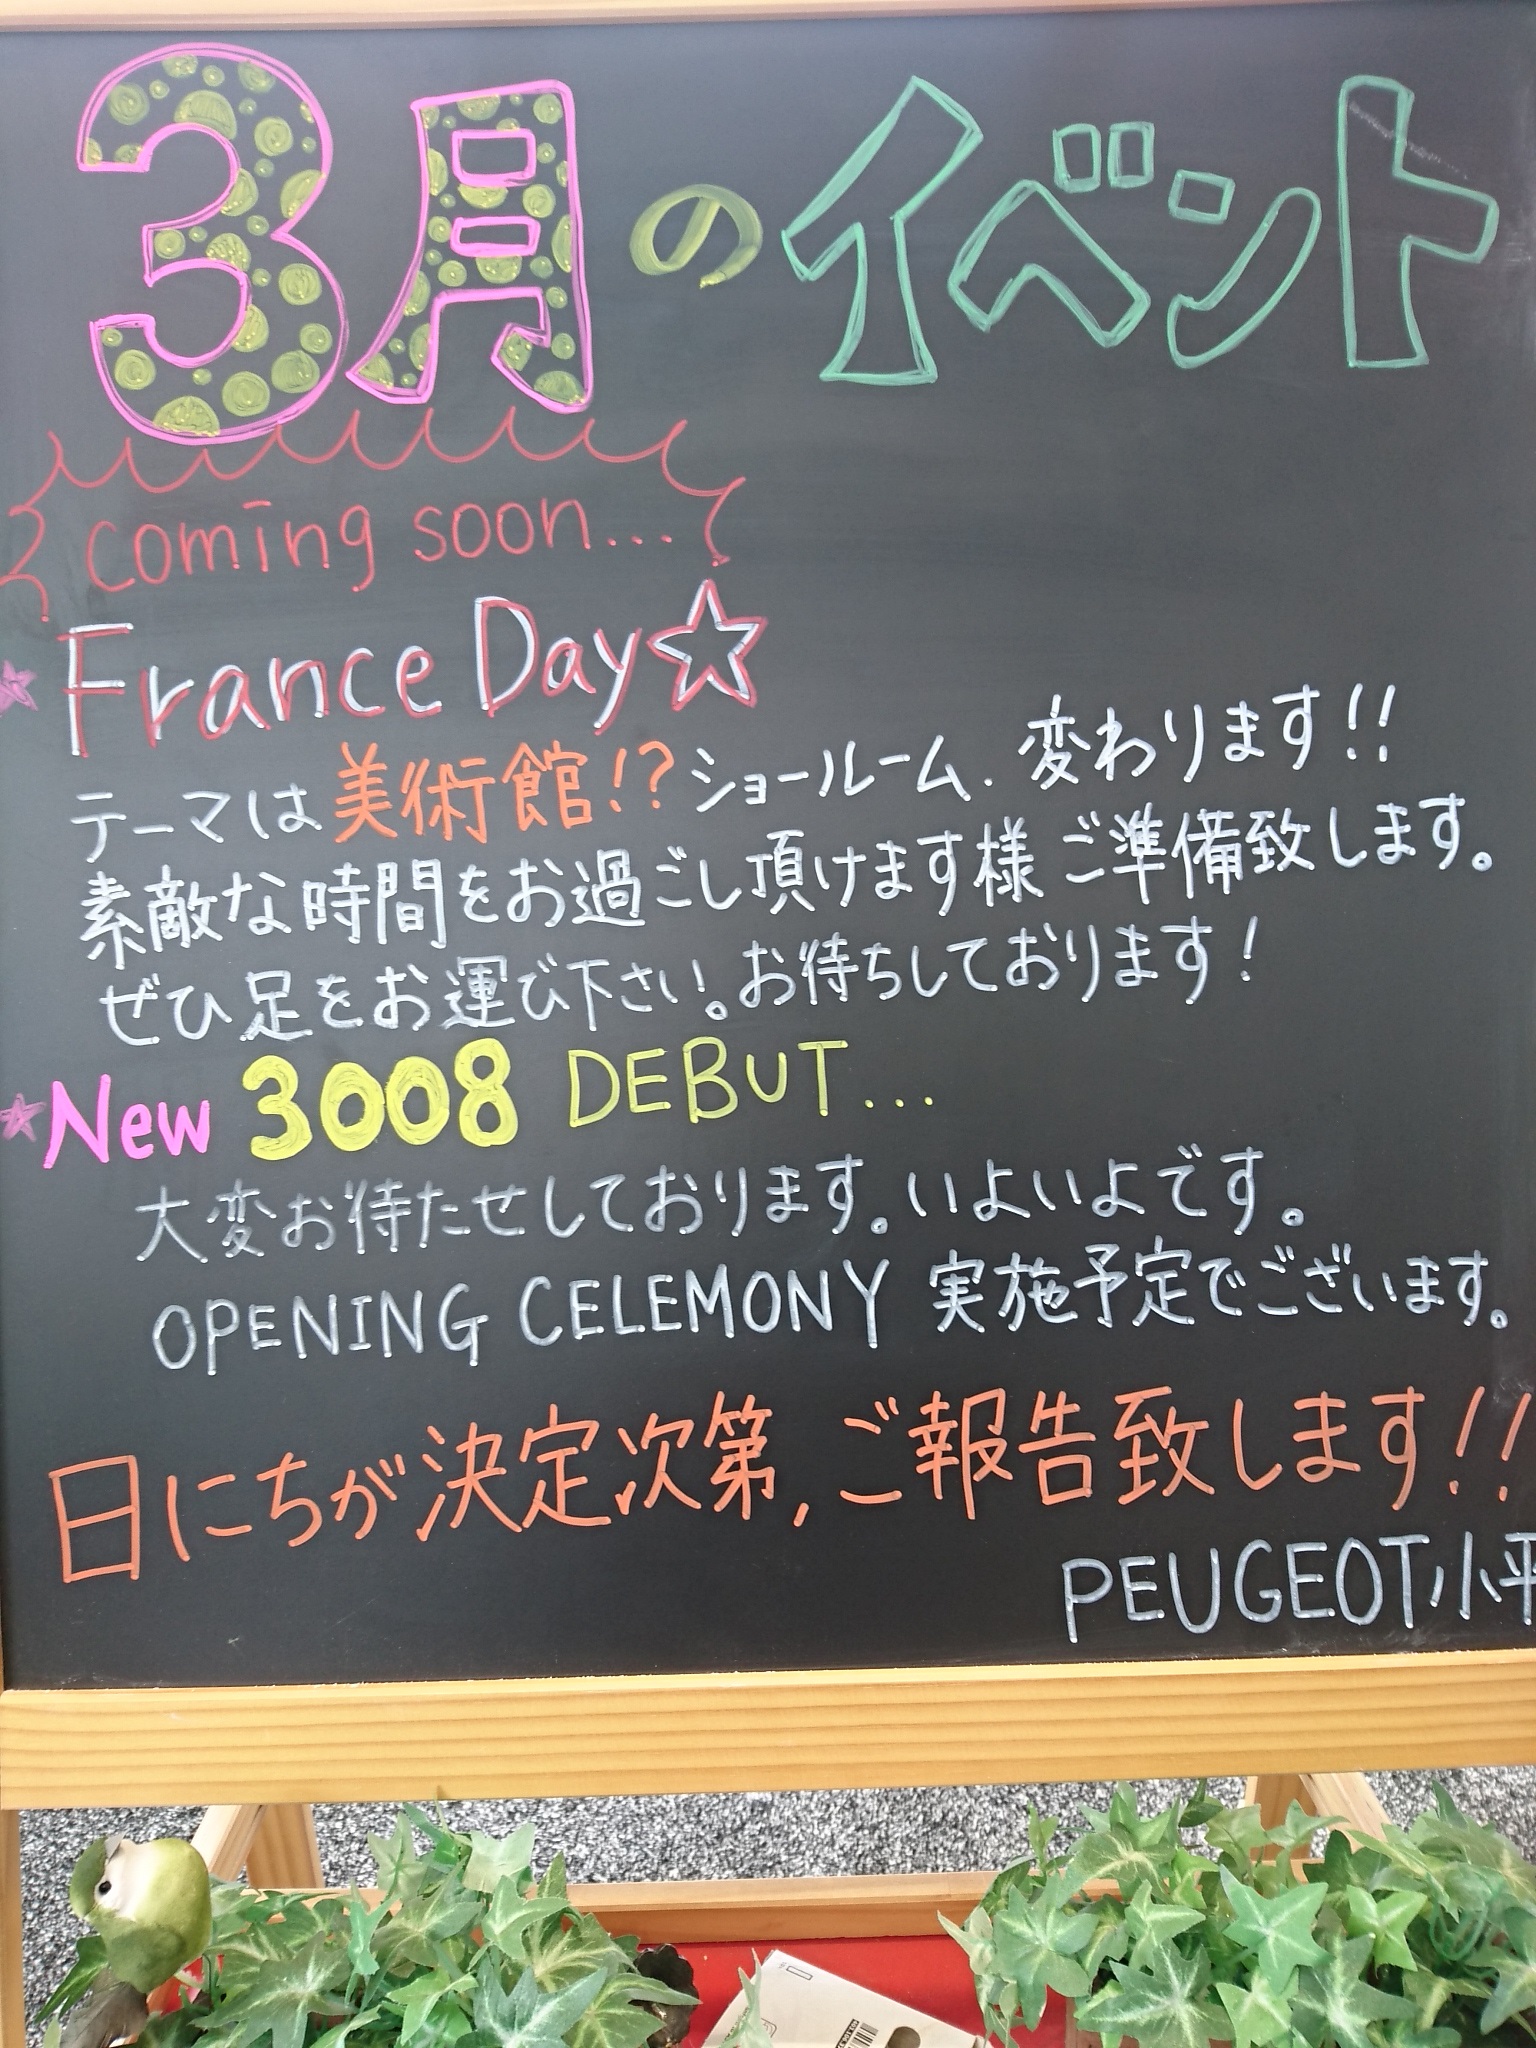 3月のイベント
coming soon...
France Day☆
テーマは美術館!?ショールーム.変わります!!
素敵な時間をお過ごし頂けます様ご準備致します。
ぜひ足をお運び下さい。お待ちしております!
★New 3008 DEBUT...
大変お待たせしております。いよいよです。
OPENING CELEMONY 実施予定でございます。
日にちが決定次第,ご報告致します!!
PEUGEOT小平